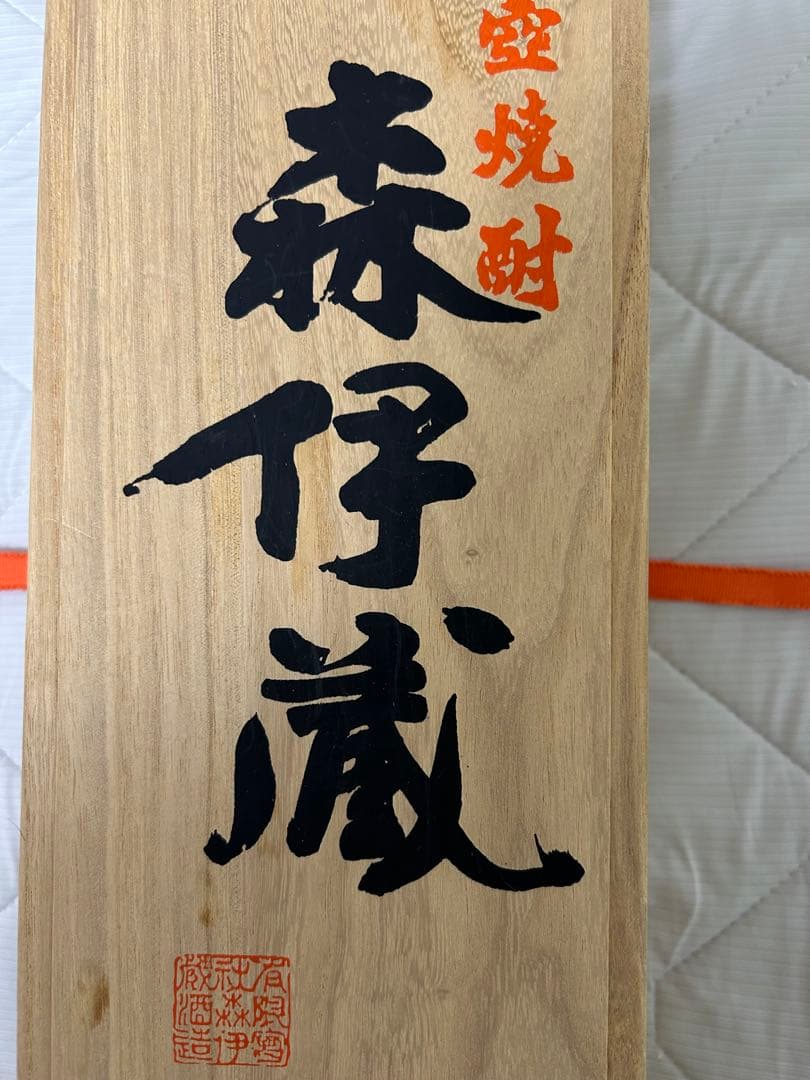 壺焼酎
森伊蔵
有限會
社森伊
蔵酒造